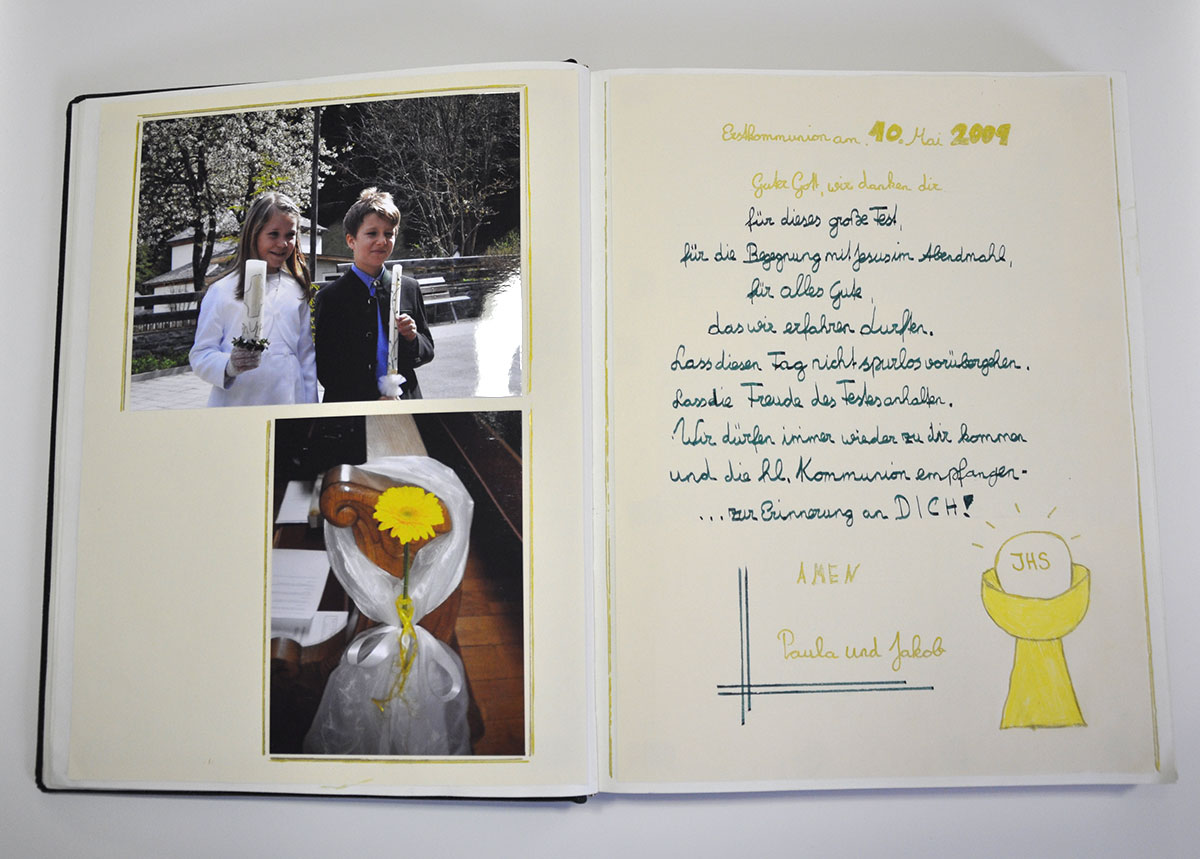 Erstkommunion am 10. Mai 2009
Guter Gott, wir danken dir
für dieses große Fest,
für die Begegnung mit Jesus im Abendmahl,
für alles Gute,
das wir erfahren durften.
Lass diesen Tag nicht spurlos vorübergehen.
Lass die Freude des Festes anhalten.
Wir dürfen immer wieder zu dir kommen
und die hl. Kommunion empfangen -
... zur Erinnerung an DICH!
AMEN
JHS
Paula und Jakob